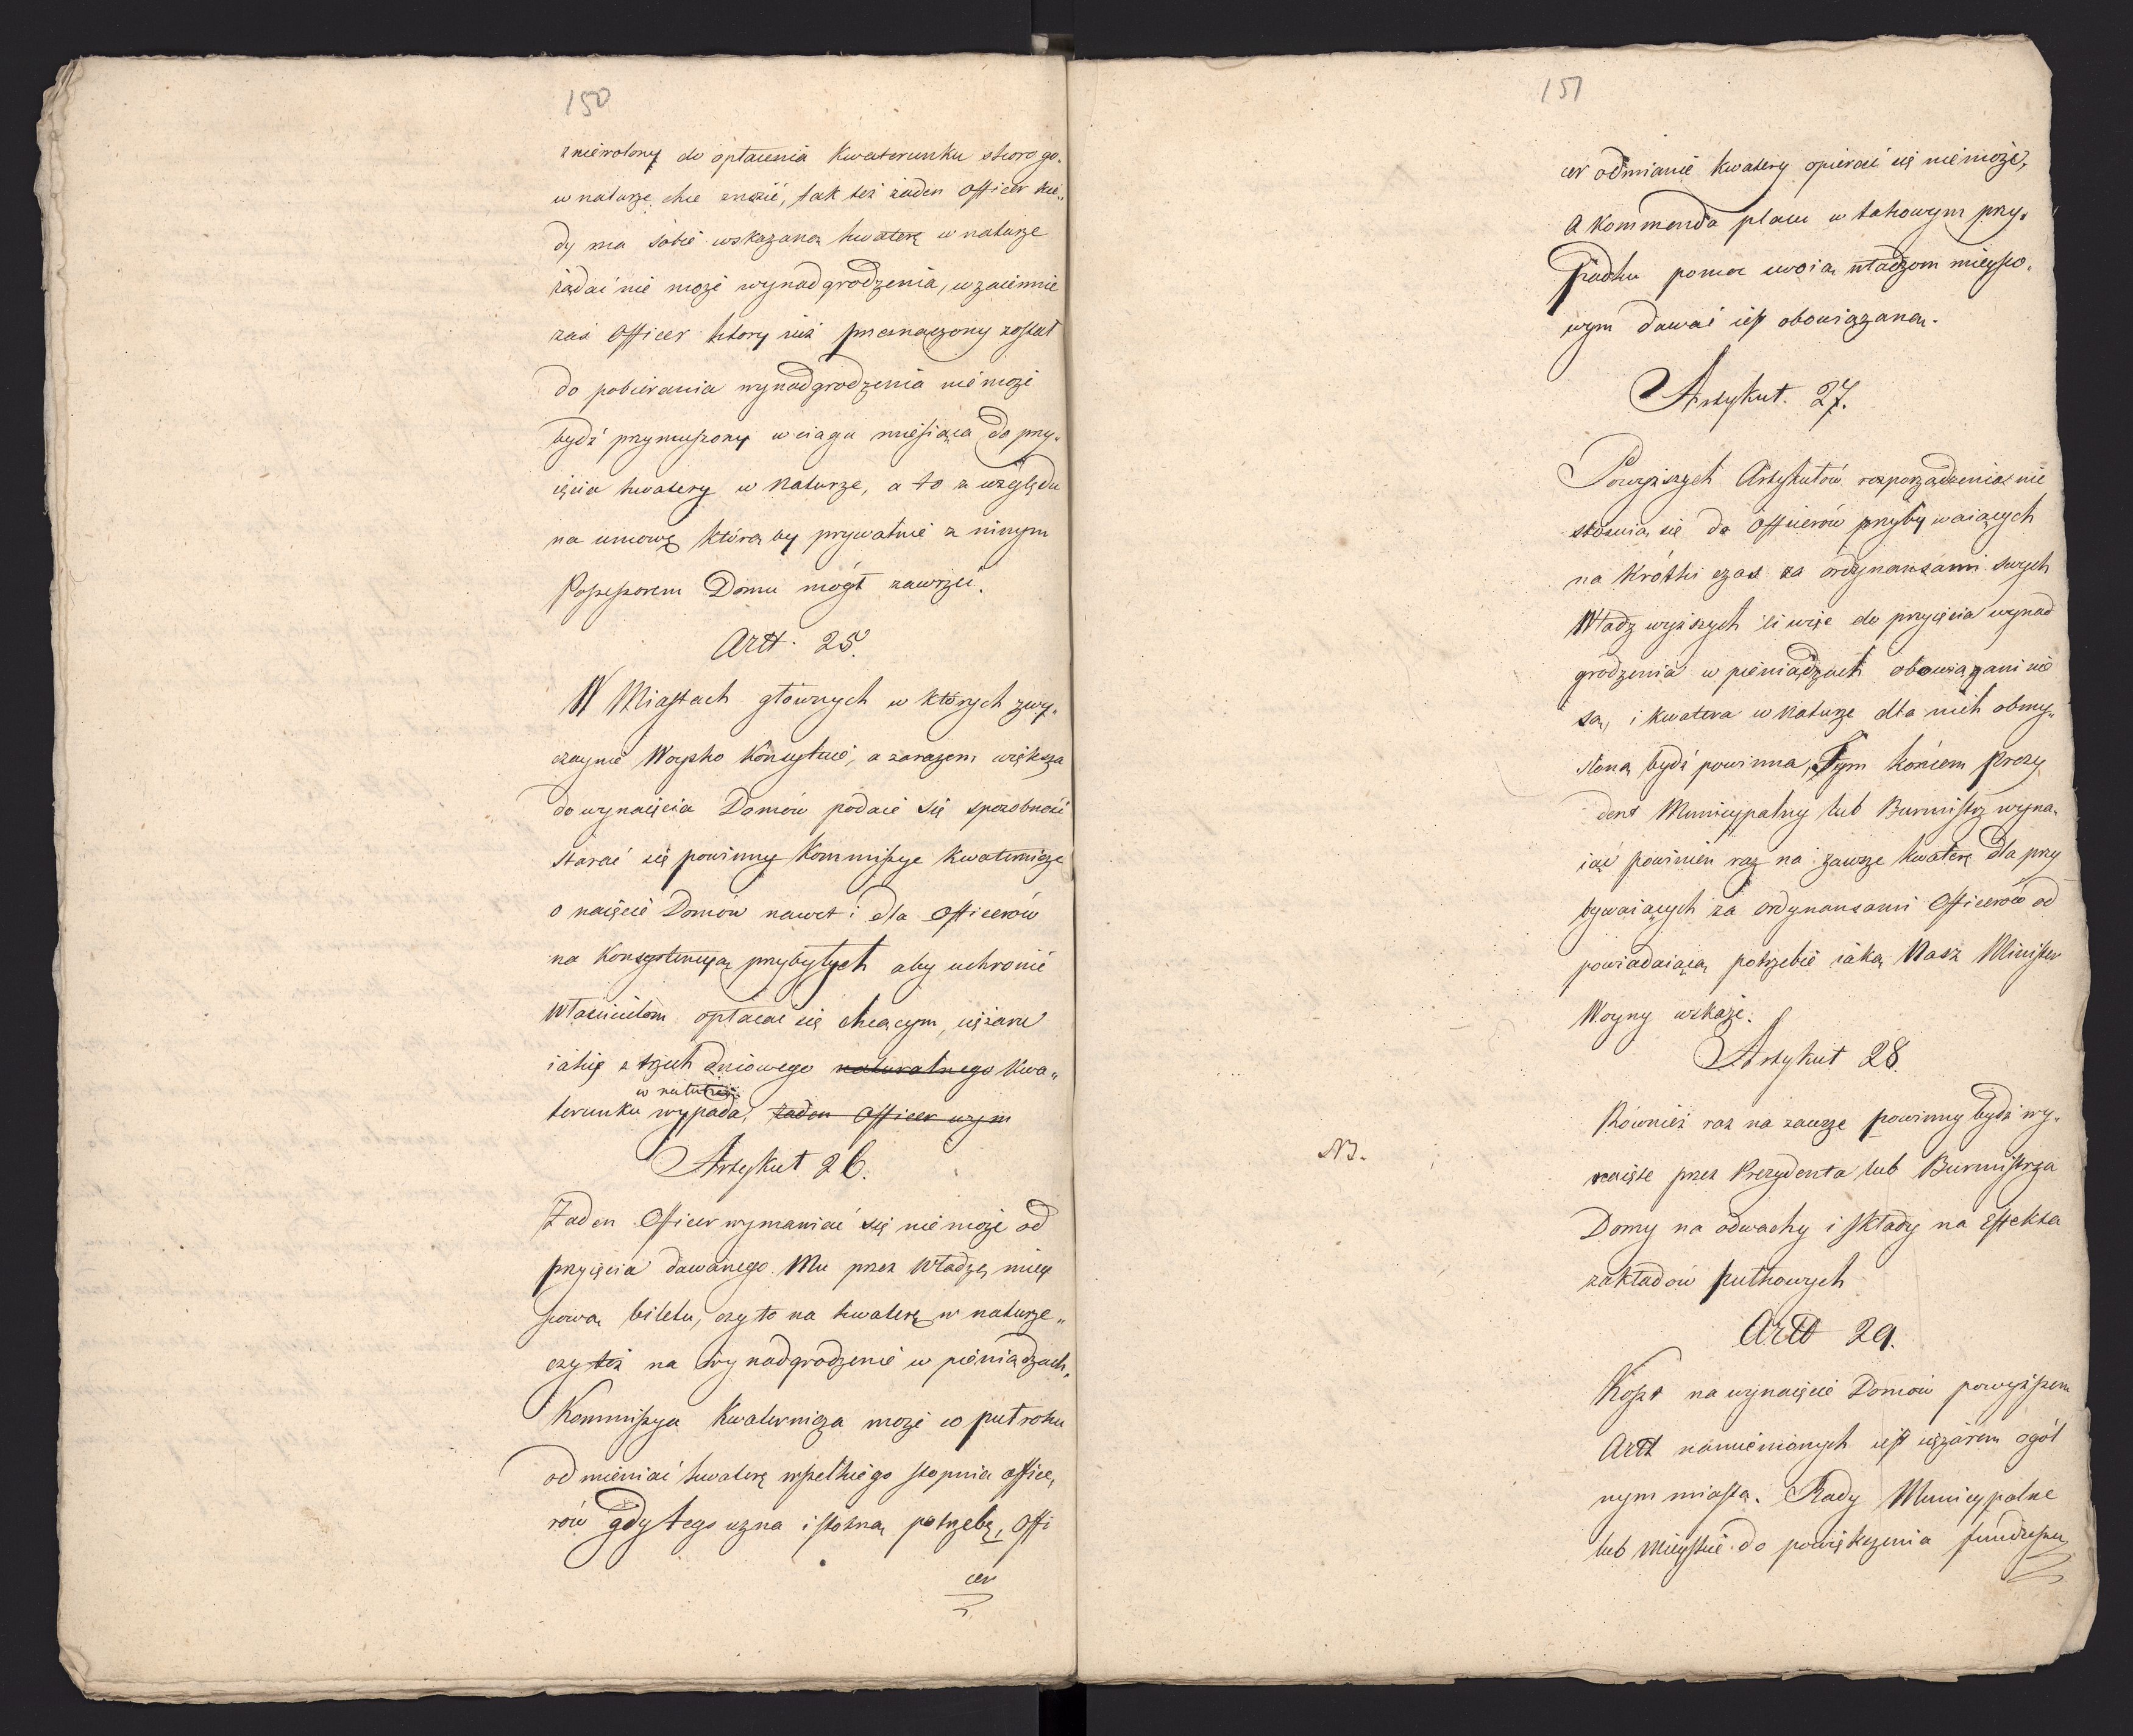 150
zniewolony do opłacenia Kwaterunku skoro go
w naturze chce znosić, tak też żaden Officer kie„
dy ma sobie wskazaną kwaterę w naturze
żądać nie może wynadgrodzenia, wzaiemnie
zaś Officer ktory iuż przeznaczony został
do pobierania wynadgrodzenia nie może
bydź przymuszony w ciągu miesiąca do przy„
ięcia kwatery w naturze, a to z względu
na umowę którą by prywatnie z innym
Possessorem Domu mógł zawrzeć.
Artt. 25.
W Miastach głownych w których zwy„
czaynie Woysko Konsystuie, a zarazem większa
do wynaięcia Domów podaie się sposobność
starać się powinny Kommissye Kwaternicze
o naięcie Domów nawet i dla Officerów
na Konsystencyą przybyłych aby uchronić
Właścicielom opłacać się chcącym, ciężaru
iakiż z trzech dniowego naturalnego Kwa„
w naturze
terunku wypada, żaden Officer wym
Artykuł 26.
Żaden Officer wymawiać się nie może od
przyięcia dawanego Mu przez Władzę miey
scową biletu, czy to na kwaterę w naturze„
czy też na wynadgrodzenie w pieniądzach.
Kommissya Kwaternicza może co puł roku
odmieniać kwaterę wszelkiego stopnia office„
rów gdy tego uzna istotną potrzebę, Offi
cer
151
cer odmianie kwatery opierać się nie może,
a Kommenda placu w takowym przy„
padku pomoc swoią władzom mieysco„
wym dawać iest obowiązaną.
Artykuł. 27.
Powyższych Artykułów rozporządzenia nie
stosuią się do Officerów przybywaiących
na krótki czas za ordynansami swych
Władz wyższych ci więc do przyięcia wynad
grodzenia w pieniądzach obowiązani nie
są, i kwatera w naturze dla nich obmy„
ślona bydź powinna, Tym końcem Prezy
dent Municypalny lub Burmistrz wyna„
iąć powinien raz na zawsze kwaterę dla przy
bywaiących za ordynansami Officerów od
powiadaiącą potrzebie iaką Nasz Minister
Woyny wskaże.
Artykuł 28.
Również raz na zawsze powinny bydź wy„
NB.
naięte przez Prezydenta lub Burmistrza
Domy na odwachy i składy na effekta
zakładów pułkowych
Artt 29.
Koszt na wynaięcie Domów powyższem
Artt namienionych iest ciężarem ogól
nym miasta. Rady Municypalne
lub Mieyskie do powiększenia funduszu